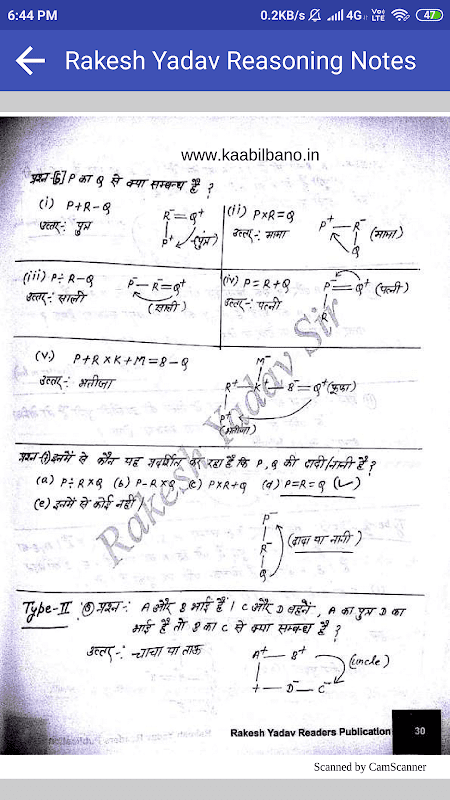 6:44 PM 0.2KB/s 4G VoLTE 47
Rakesh Yadav Reasoning Notes
www.kaabilbano.in
प्रश्न-[6] P का Q से क्या सम्बन्ध है ?
(i) P+R-Q
उत्तर:- पुत्र
R⁻=Q⁺
P⁺ (पुत्र)
(ii) P×R=Q
उत्तर:- मामा
P⁺—R⁻ (मामा)
Q
(iii) P÷R-Q
उत्तर:- साली
P⁻—R⁻=Q⁺
(साली)
(iv) P=R+Q
उत्तर:- पत्नी
P⁻=Q⁺ (पत्नी)
R
(v) P+R×K+M=8-Q
उत्तर:- भतीजा
M⁻
R⁺—K⁺—8⁻=Q⁺(फूफा)
P⁺
(भतीजा)
प्रश्न-(7) इनमें से कौन यह प्रदर्शित कर रहा है कि P, Q की दादी/नानी है ?
(a) P÷R×Q (b) P-R×Q (c) P×R+Q (d) P=R=Q (✓)
(e) इनमें से कोई नहीं।
P⁻
R⁻ (दादा या नानी)
Q
Type-II (8) प्रश्न:- A और B भाई हैं। C और D बहनें, A का पुत्र D का
भाई है तो B का C से क्या सम्बन्ध है ?
उत्तर:- चाचा या ताऊ
A⁺—B⁺
(uncle)
+—D⁻—C⁻
Rakesh Yadav Sir
Rakesh Yadav Readers Publication 30
Scanned by CamScanner